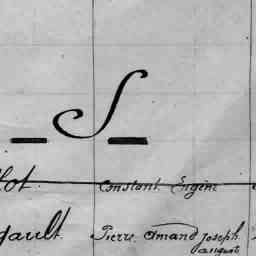 S
lot Constant Eugène
gault Pierre Amand Joseph
auguste